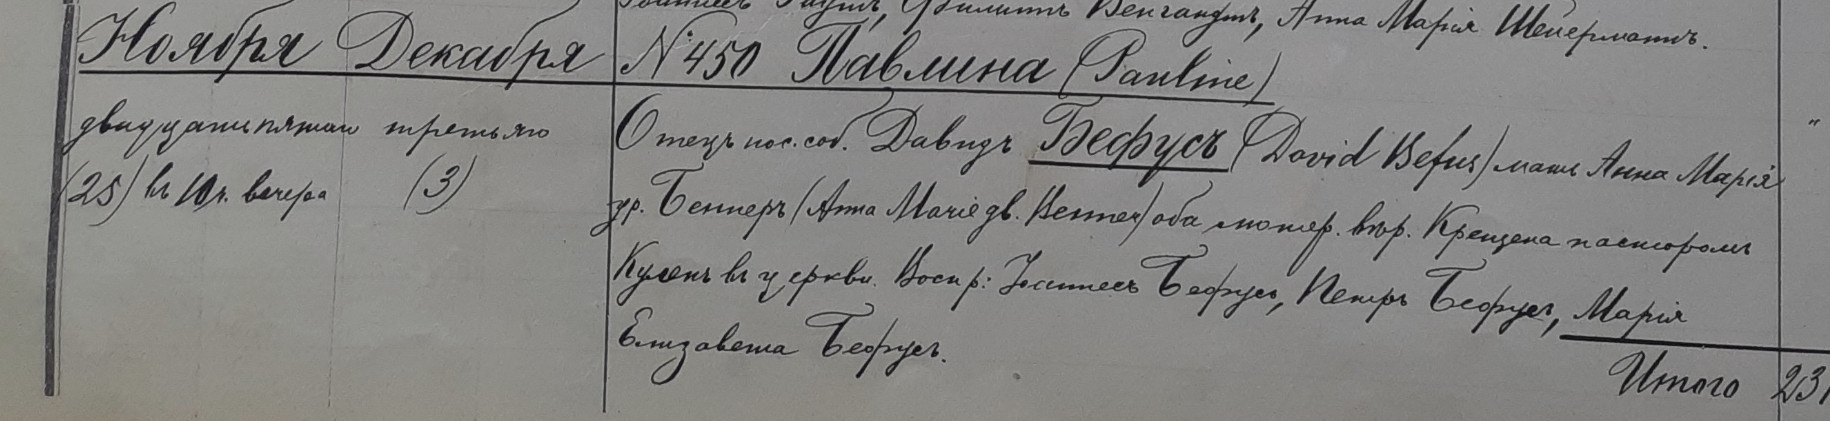 Филиппъ Венгандтъ, Анна Марія Шейерманъ.
Ноября Декабря №450 Павлина (Pauline)
двадцать пятаго третьяго Отецъ пос. соб. Давидъ Бефусъ (David Befus) мать Анна Марія
(25) въ 10 ч. вечера (3) ур. Беннеръ (Anna Marie gb. Benner) оба лютер. вѣр. Крещена пасторомъ
въ церкви. Воспр: Іоганнесъ Бефусъ, Петръ Бефусъ, Марія
Елизавета Бефусъ.
Итого 231